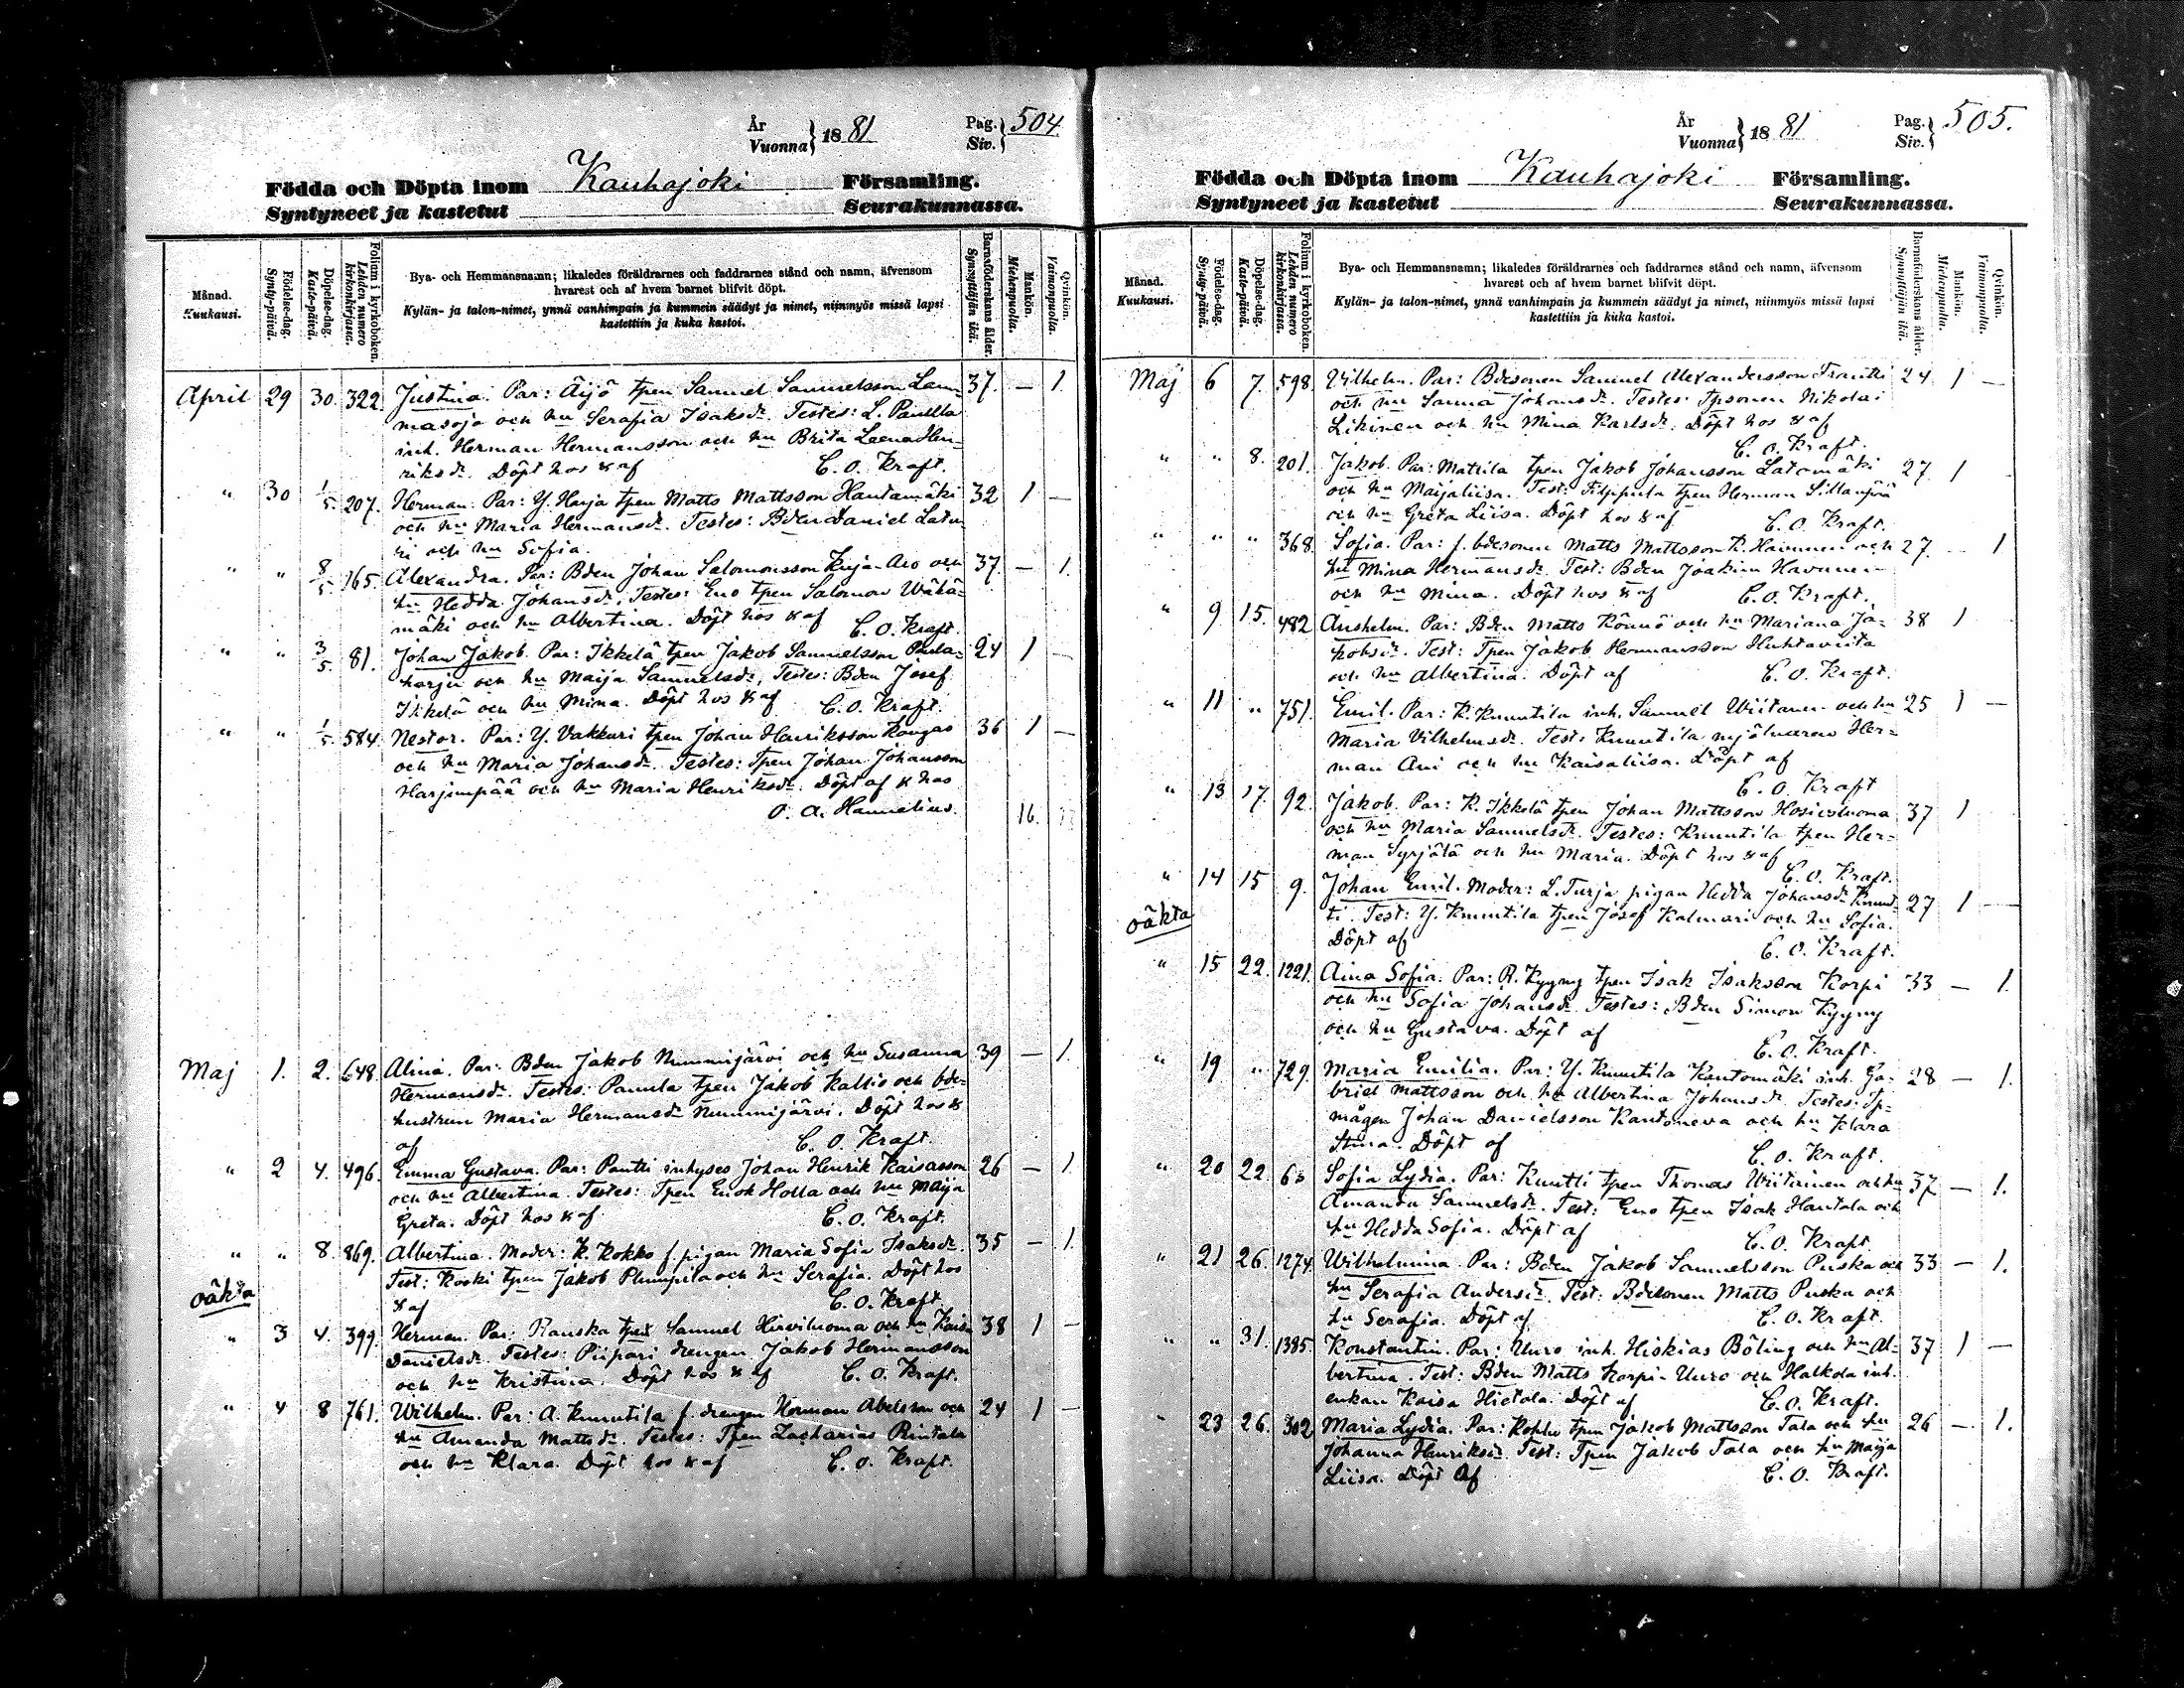 År
Vuonna } 1881
Pag.
Siv. } 504
Födda och Döpta inom Kauhajoki Församling.
Syntyneet ja kastetut Seurakunnassa.
Månad.
Kuukausi.
Födelse-dag.
Synty-päivä.
Döpelse-dag.
Kaste-päivä.
Folium i kyrkoboken.
Lehden numero kirkonkirjassa.
Bya- och Hemmansnamn; likaledes föräldrarnes och faddrarnes stånd och namn, äfvensom
hvarest och af hvem barnet blifvit döpt.
Kylän- ja talon-nimet, ynnä vanhimpain ja kummein säädyt ja nimet, niinmyös missä lapsi
kastettiin ja kuka kastoi.
Barnaföderskans ålder.
Synnyttäjän ikä.
Mankön.
Miehenpuolta.
Qvinkön.
Vaimonpuolta.
April 29 30. 322. Justina. Par: Äijö tpen Samuel Samuelsson Lam- 37. — 1.
masoja och hu Serafia Isaksdr. Testes: L. Panula
inh. Herman Hermansson och hu Brita Leena Hen-
riksdr. Döpt hos & af C. O. Kraft.
" 30 1/5. 207. Herman. Par: Y. Harja tpen Matts Mattsson Hautamäki 32 1 —
och hu Maria Hermansdr. Testes: Bden Daniel Latu-
ri och hu Sofia.
" " 8/5. 165. Alexandra. Par: Bden Johan Salomonsson Kuja-Aro och 37. — 1.
hu Hedda Johansdr. Testes: Eno tpen Salomon Wähä-
mäki och hu Albertina. Döpt hos & af C. O. Kraft.
" " 3/5. 81. Johan Jakob. Par: Ikkelä tpen Jakob Samuelsson Penta- 24 1 —
harju och hu Maija Samuelsdr. Testes: Bden Josef
Ikkelä och hu Mina. Döpt hos & af C. O. Kraft.
" " 1/5. 584. Nestor. Par: Y. Vakkuri tpen Johan Henriksson Kangas 36 1 —
och hu Maria Johansdr. Testes: Tpen Johan Johansson
Harjunpää och hu Maria Henriksdr. Döpt af & hos
O. A. Hannelius. 16.
Maj 1. 2. 648. Alina. Par: Bden Jakob Nummijärvi och hu Susanna 39 — 1.
Hermansdr. Testes: Panula tpen Jakob Kallio och bde-
hustrun Maria Hermansdr Nummijärvi. Döpt hos &
af C. O. Kraft.
" 2 4. 496. Emma Gustava. Par: Pantti inhyses Johan Henrik Kaisasson 26 — 1.
och hu Albertina. Testes: Tpen Enok Holla och hu Maija
Greta. Döpt hos & af C. O. Kraft.
" " 8. 869. Albertina. Moder: K. Kokko f. pigan Maria Sofia Isaksdr. 35 — 1.
Test: Koski tpen Jakob Plumpila och hu Serafia. Döpt hos
oäkta & af C. O. Kraft
" 3 4. 399. Herman. Par: Rauska tpen Samuel Hirviluoma och hu Kaisa 38 1 —
Danielsdr. Testes: Piipari drengen Jakob Hermansson
och hu Kristina. Döpt hos & af C. O. Kraft.
" 4 8 761. Wilhelm. Par: A. Knuutila f. drengen Herman Abelsson och 24 1 —
hu Amanda Mattsdr. Testes: Tpen Zacharias Rintala
och hu Klara. Döpt hos & af C. O. Kraft.
År
Vuonna } 1881
Pag.
Siv. } 505.
Födda och Döpta inom Kauhajoki Församling.
Syntyneet ja kastetut Seurakunnassa.
Månad.
Kuukausi.
Födelse-dag.
Synty-päivä.
Döpelse-dag.
Kaste-päivä.
Folium i kyrkoboken.
Lehden numero kirkonkirjassa.
Bya- och Hemmansnamn; likaledes föräldrarnes och faddrarnes stånd och namn, äfvensom
hvarest och af hvem barnet blifvit döpt.
Kylän- ja talon-nimet, ynnä vanhimpain ja kummein säädyt ja nimet, niinmyös missä lapsi
kastettiin ja kuka kastoi.
Barnaföderskans ålder.
Synnyttäjän ikä.
Mankön.
Miehenpuolta.
Qvinkön.
Vaimonpuolta.
Maj 6 7. 598. Vilhelm. Par: Bdesonen Samuel Alexandersson Trantti 24 1 —
och hu Sanna Johansdr. Testes: Tpsonen Nikolai
Likinen och hu Mina Karlsdr. Döpt hos & af
C. O. Kraft.
" " 8. 201. Jakob. Par: Mattila tpen Jakob Johansson Latomäki 27 1
och hu Maijaliisa. Test: Filppula tpen Herman Sillanpää
och hu Greta Liisa. Döpt hos & af C. O. Kraft.
" " " 368. Sofia. Par: f. bdesonen Matts Mattsson K. Havunen och 27. — 1
hu Mina Hermansdr. Test: Bden Joakim Havunen
och hu Mina. Döpt hos & af C. O. Kraft.
" 9 15. 482 Anshelm. Par: Bden Matts Könnö och hu Mariana Ja- 38 1
kobsdr. Test: Tpen Jakob Hermansson Huhtaviita
och hu Albertina. Döpt af C. O. Kraft.
" 11 " 751. Emil. Par: K. Knuutila inh. Samuel Wiitanen och hu 25 1 —
Maria Vilhelmsdr. Test: Knuutila mjölnaren Her-
man Ani och hu Kaisaliisa. Döpt af
C. O. Kraft
" 13 17. 92. Jakob. Par: K. Ikkelä tpen Johan Mattsson Hosiosluoma 37 1
och hu Maria Samuelsdr. Testes: Knuutila tpen Her-
man Syrjälä och hu Maria. Döpt hos & af
C. O. Kraft.
" 14 15 9. Johan Emil. Moder: L. Turja pigan Hedda Johansdr Knuut- 27 1 —
oäkta ti. Test: Y. Knuutila tpen Josef Kalmari och hu Sofia.
Döpt af C. O. Kraft.
" 15 22. 1221. Aina Sofia. Par: R. Kyyny tpen Isak Isaksson Korpi 33 — 1.
och hu Sofia Johansdr. Testes: Bden Simon Kyyny
och hu Gustava. Döpt af
C. O. Kraft.
" 19 " 729. Maria Emilia. Par: Y. Knuutila Kantomäki inh. Ga- 28 — 1.
briel Mattsson och hu Albertina Johansdr. Testes: Tp-
mågen Johan Danielsson Kantoneva och hu Klara
Stina. Döpt af C. O. Kraft.
" 20 22. Sofia Lydia. Par: Knutti tpen Thomas Wiitainen och hu 37 — 1.
Amanda Samuelsdr. Test: Eno tpen Isak Hautala och
hu Hedda Sofia. Döpt af C. O. Kraft.
" 21 26. 1274. Wilhelmina. Par: Bden Jakob Samuelsson Puska och 33 — 1.
hu Serafia Andersdr. Test: Bdesonen Matts Puska och
hu Serafia. Döpt af C. O. Kraft.
" " 31. 1385. Konstantin. Par: Uuro inh. Hiskias Böling och hu Al- 37 1 —
bertina. Test: Bden Matts Korpi-Uuro och Halkola inh.
enkan Kaisa Hietala. Döpt af C. O. Kraft.
" 23 26. 302 Maria Lydia. Par: Kohlu tpen Jakob Mattsson Tala och hu 26 — 1.
Johanna Henriksdr. Test: Tpen Jakob Tala och hu Maija
Liisa. Döpt af C. O. Kraft.